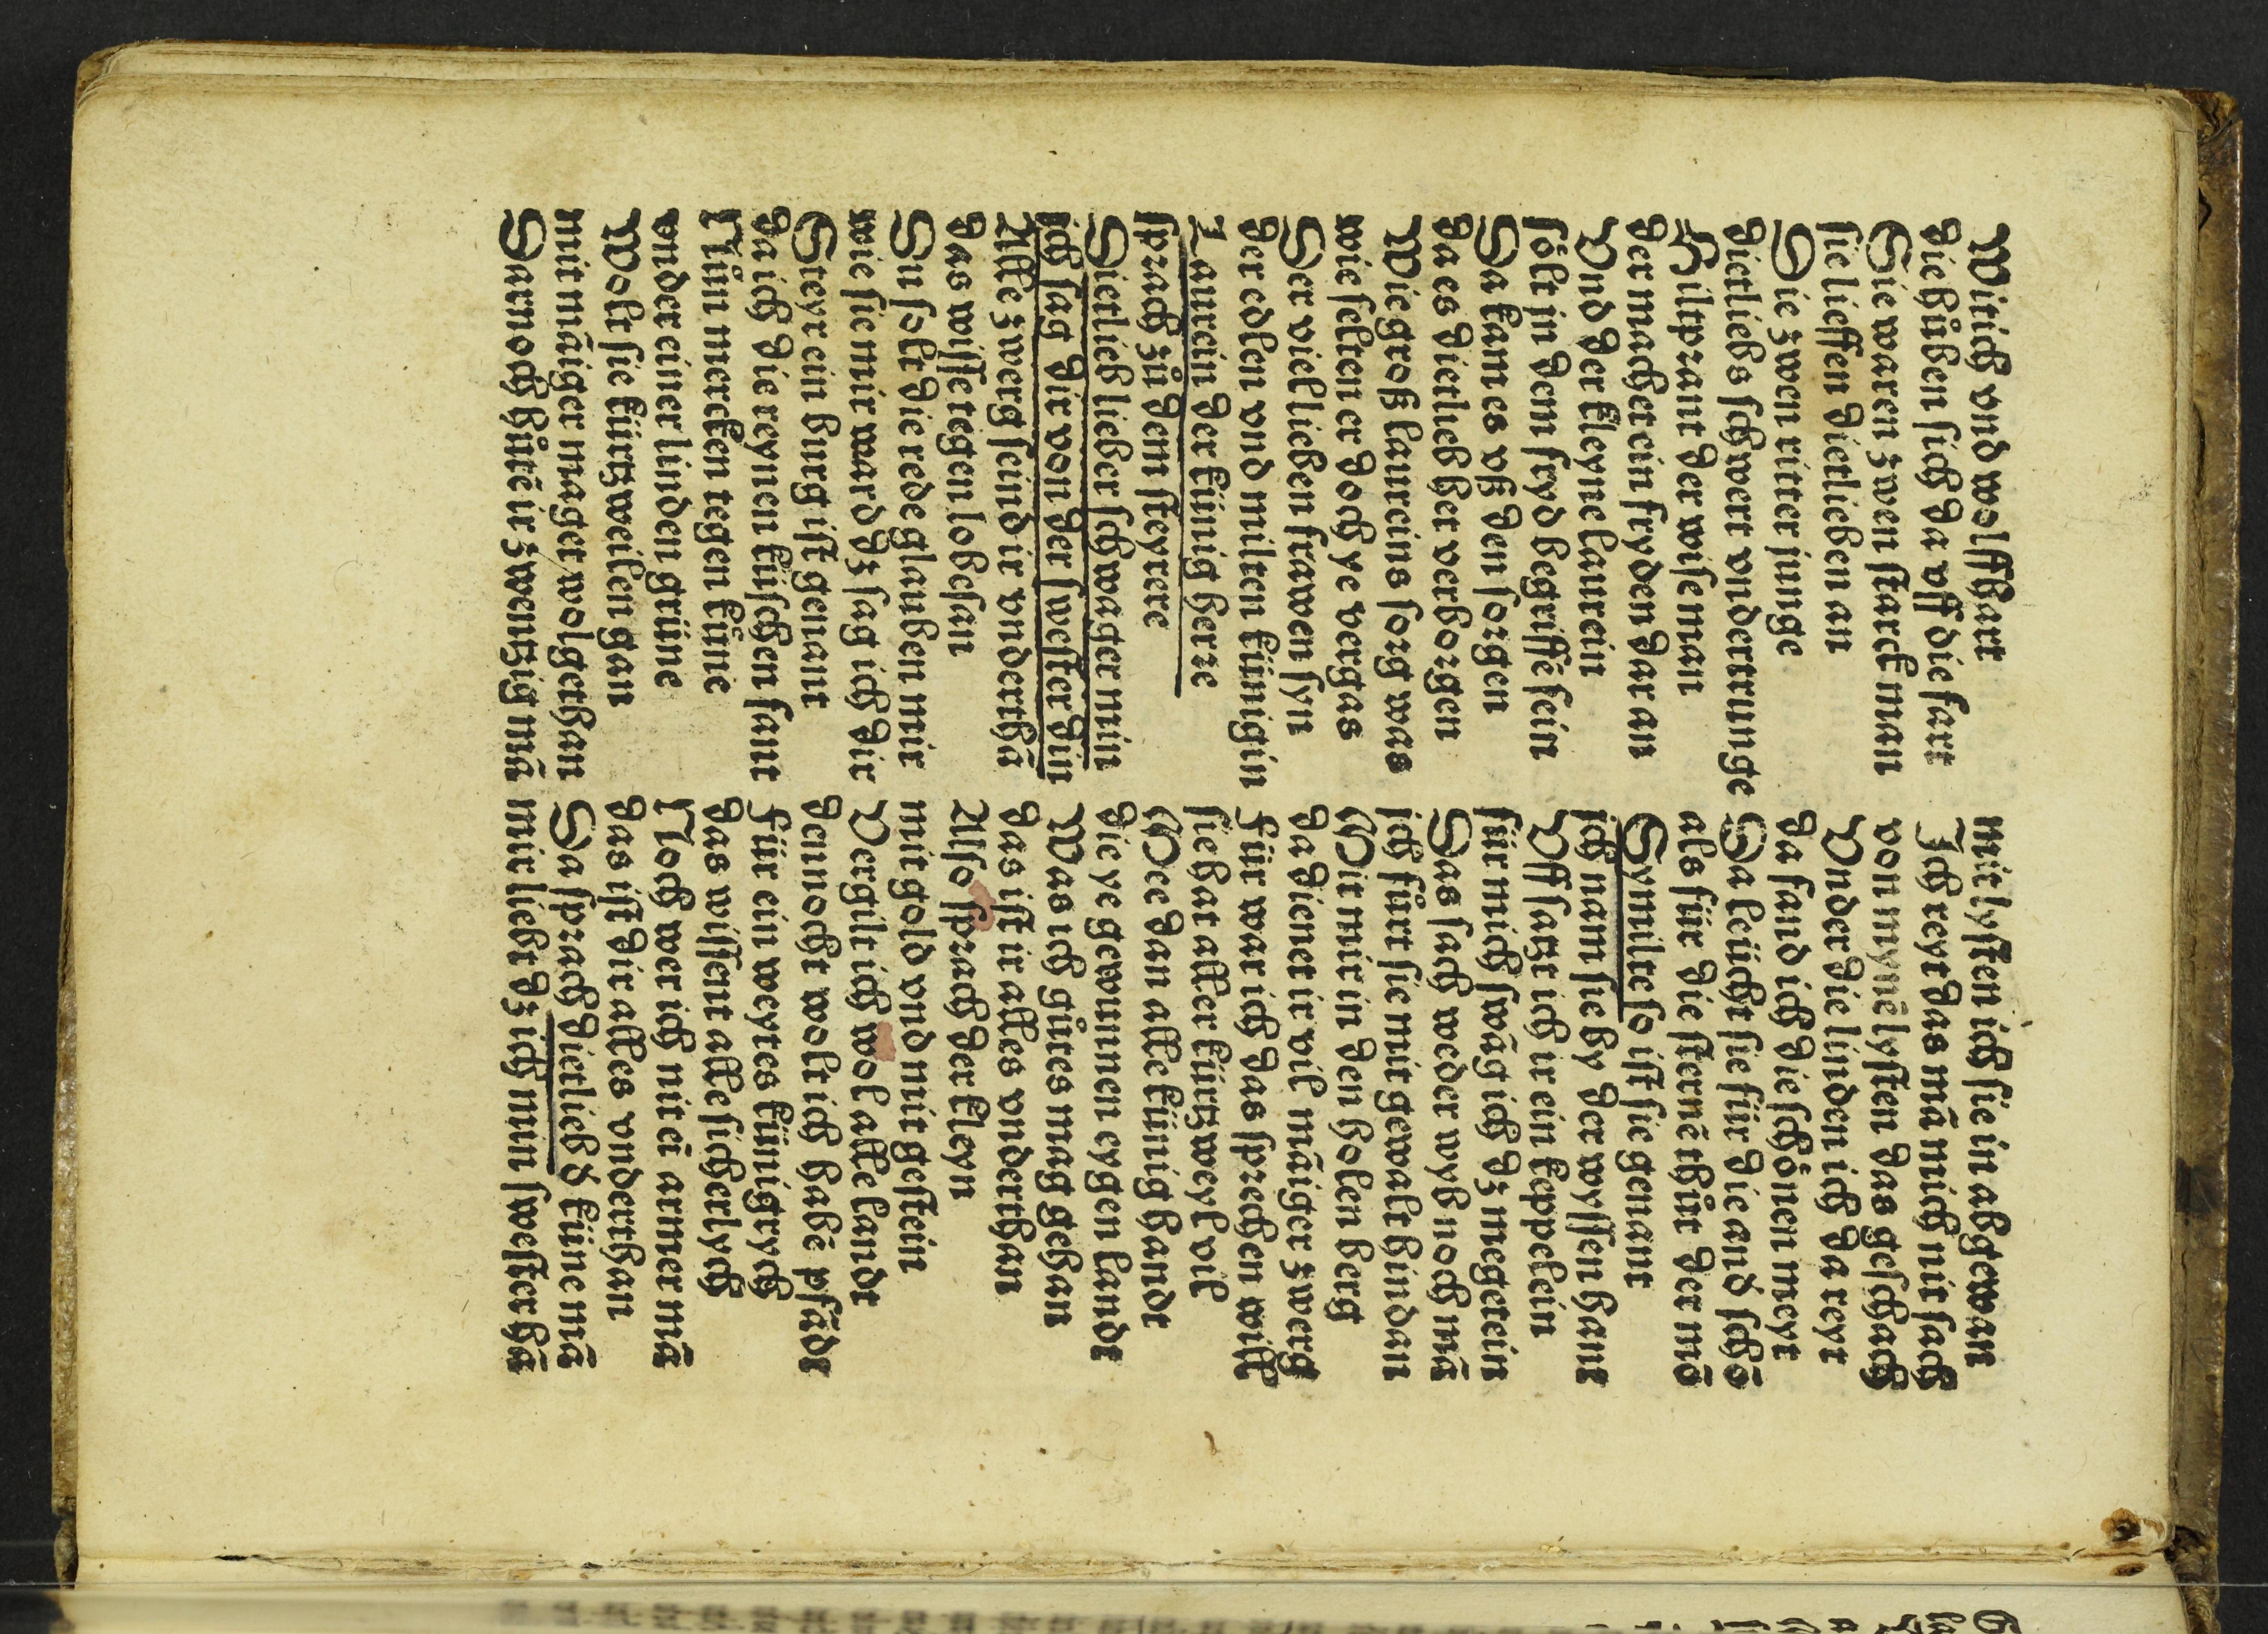 Witich vnd wolffhart
die hůben sich da vff die fart
Sie waren zwen starck man
sie lieffen dietlieben an
Die zwen ritter junge
dietliebs schwert vndertrunge
Hiltprant der wise man
der machet ein fryden dar an
Vnd der kleyne laurein
sölt jn dem fryd begriffē sein
Da kam es vß den sorgen
da es dietlieb her verborgen
Wie groß laureins sorg was
wie selten er doch ye vergas
Der viel lieben frawen syn
der edlen vnd milten künigin
Laurein der künig herre
sprach zů dem steyrere
Dietlieb lieber schwager min
ich sag dir von der swester din
Alle zwerg seind ir vnderthā
das wissē tegen lobesan
Du solt die rede glauben mir
wie sie mir ward dz sag ich dir
Steyr ein burg ist genant
da ich die reynen küschen fant
Nůn mercken tegen kůne
vnder einer linden grüne
Wolt sie kürtzweilen gan
mit māiger maget wolgethan
Darnoch hůtē ir zwentzig mā
mit lysten ich sie in abgewan
Ich reyt das mā mich nit sach
von mynē lysten das geschach
Vnder die linden ich da reyt
da fand ich die schönen meyt
Da leücht sie für die and schö
als für die sternē thůt der mō
Symilte so ist sie genant
ich nam sie by der wyssen hant
Vff satzt ich ir ein keppelein
für mich swāg ich dz megetein
Das sach weder wyb noch mā
ich fůrt sie mit gewalt hindan
Mit mir in den holen berg
da dienet ir vil māiger zwerg
Für war ich das sprechen will
sie hat aller kürtzweyl vil
Mee dan alle künig handt
die ye gewunnen eygen landt
Was ich gůtes mag gehan
das ist ir alles vnderthan
Also sprach der kleyn
mit gold vnd mit gestein
Vergilt ich wol alle landt
dennocht wolt ich habē pfādt
Für ein weytes künigrych
das wissent alle sicherlych
Noch wer ich nit ein armer mā
das ist dir alles vnderthan
Da sprach dietliebd küne mā
mir liebt dz ich min swester hā